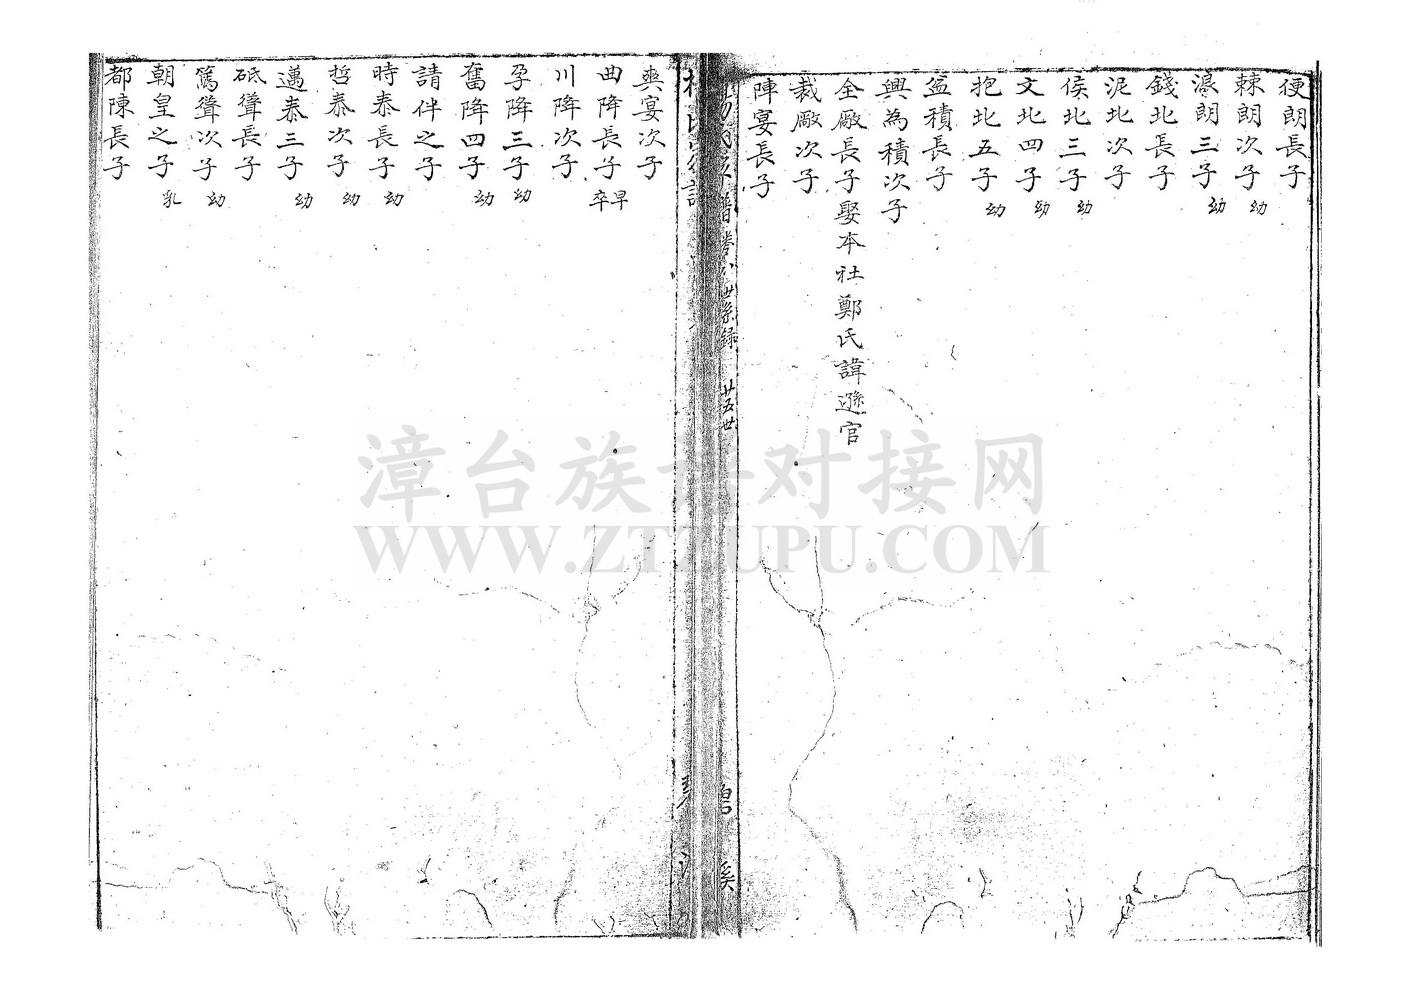 便朗長子
棘朗次子 幼
濕朗三子 幼
錢北長子
泥北次子
侯北三子 幼
文北四子 幼
抱北五子 幼
盆積長子
興為積次子
全厰長子娶本社鄭氏諱遜官
裁厰次子
陣宴長子
楊氏族譜 卷八世系錄 廿五世 碧溪
爽宴次子
曲降長子 早卒
川降次子
孕降三子 幼
奮降四子 幼
請伴之子
時泰長子 幼
哲泰次子 幼
邁泰三子 幼
砥聳長子
篤聳次子 幼
朝皇之子 乳
都陳長子
漳台族谱对接网
WWW.ZTZUPU.COM